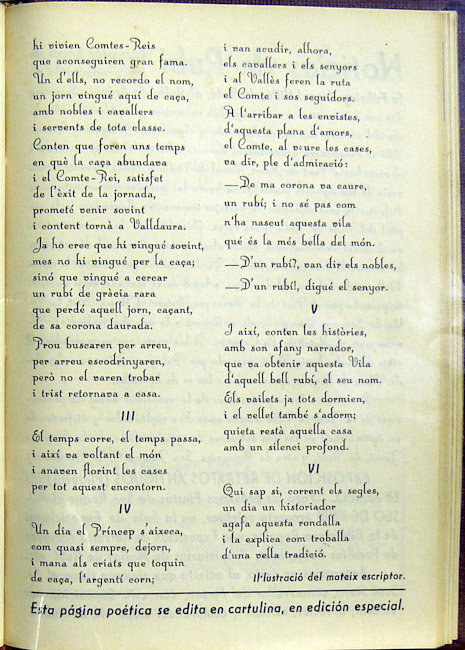 hi vivien Comtes-Reis
que aconseguiren gran fama.
Un d'ells, no recordo el nom,
un jorn vingué aquí de caça,
amb nobles i cavallers
i servents de tota classe.
Conten que foren uns temps
en què la caça abundava
i el Comte-Rei, satisfet
de l'èxit de la jornada,
prometé venir sovint
i content tornà a Valldaura.
Ja ho crec que hi vingué sovint,
mes no hi vingué per la caça;
sinó que vingué a cercar
un rubí de gràcia rara
que perdé aquell jorn, caçant,
de sa corona daurada.
Prou buscaren per arreu,
per arreu escodrinyaren,
però no el varen trobar
i trist retornava a casa.
III
El temps corre, el temps passa,
i així va voltant el món
i anaven florint les cases
per tot aquest encontorn.
IV
Un dia el Príncep s'aixeca,
com quasi sempre, dejorn,
i mana als criats que toquin
de caça, l'argentí corn;
i van acudir, alhora,
els cavallers i els senyors
i al Vallès feren la ruta
el Comte i sos seguidors.
A l'arribar a les envistes,
d'aquesta plana d'amors,
el Comte, al veure les cases,
va dir, ple d'admiració:
—De ma corona va caure,
un rubí; i no sé pas com
n'ha nascut aquesta vila
qué és la més bella del món.
—D'un rubí?, van dir els nobles,
—D'un rubí!, digué el senyor.
V
I així, conten les històries,
amb son afany narrador,
que va obtenir aquesta Vila
d'aquell bell rubí, el seu nom.
Els vailets ja tots dormien,
i el vellet també s'adorm;
quieta restà aquella casa
amb un silenci profond.
VI
Qui sap si, corrent els segles,
un dia un historiador
agafa aquesta rondalla
i la explica com troballa
d'una vella tradició.
Il·lustració del mateix escriptor.
Esta página poética se edita en cartulina, en edición especial.